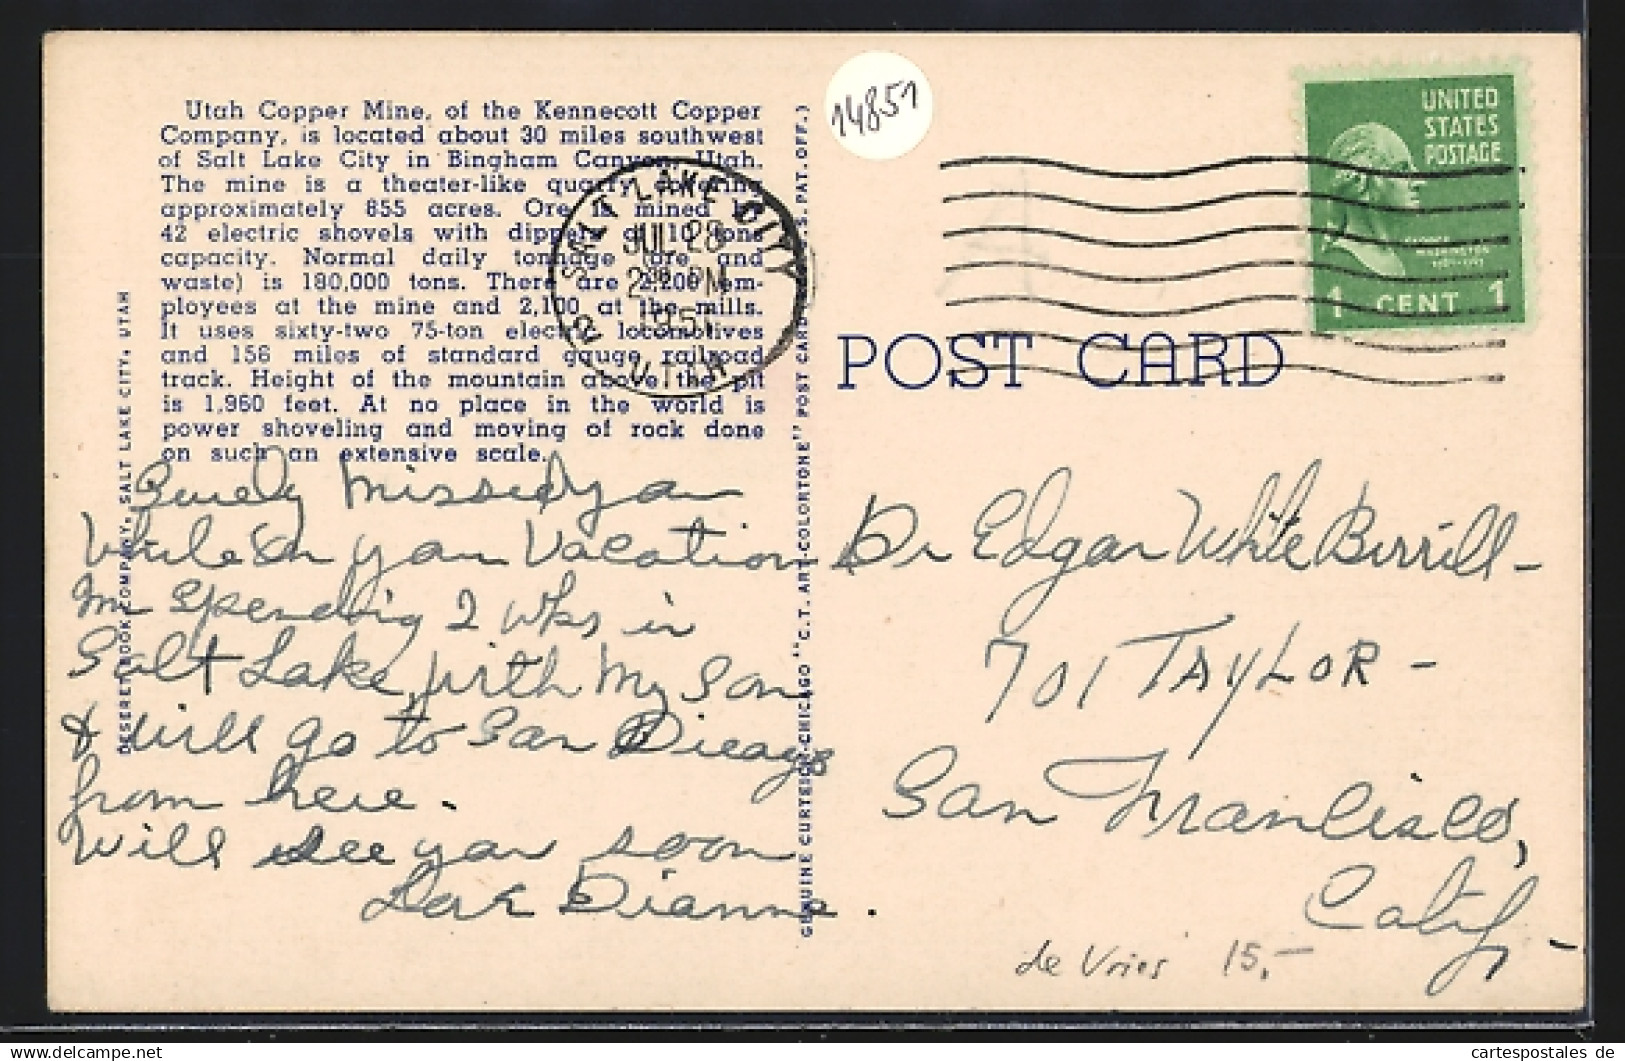 Utah Copper Mine, of the Kennecott Copper
Company, is located about 30 miles southwest
of Salt Lake City in Bingham Canyon, Utah.
The mine is a theater-like quarry covering
approximately 855 acres. Ore is mined by
42 electric shovels with dippers of 10 tons
capacity. Normal daily tonnage (ore and
waste) is 180,000 tons. There are 2,200 em-
ployees at the mine and 2,100 at the mills.
It uses sixty-two 75-ton electric locomotives
and 156 miles of standard gauge railroad
track. Height of the mountain above the pit
is 1,960 feet. At no place in the world is
power shoveling and moving of rock done
on such an extensive scale.
DESERET BOOK COMPANY, SALT LAKE CITY, UTAH
Surely missed you
while on your vacation
Im spending 2 wks in
Salt Lake, with my son
& will go to San Dieago
from here.
Will see you soon
Dianne.
GENUINE CURTEICH-CHICAGO "C.T. ART-COLORTONE" POST CARD U.S. PAT. OFF.)
14851
SALT LAKE CITY
JUL 28
2 PM
1951
UTAH
UNITED
STATES
POSTAGE
GEORGE
WASHINGTON
1 CENT 1
POST CARD
Dr Edgar White Burrill –
701 TAYLOR –
San Francisco,
Calif –
de Vries 15,–
cartespostales de